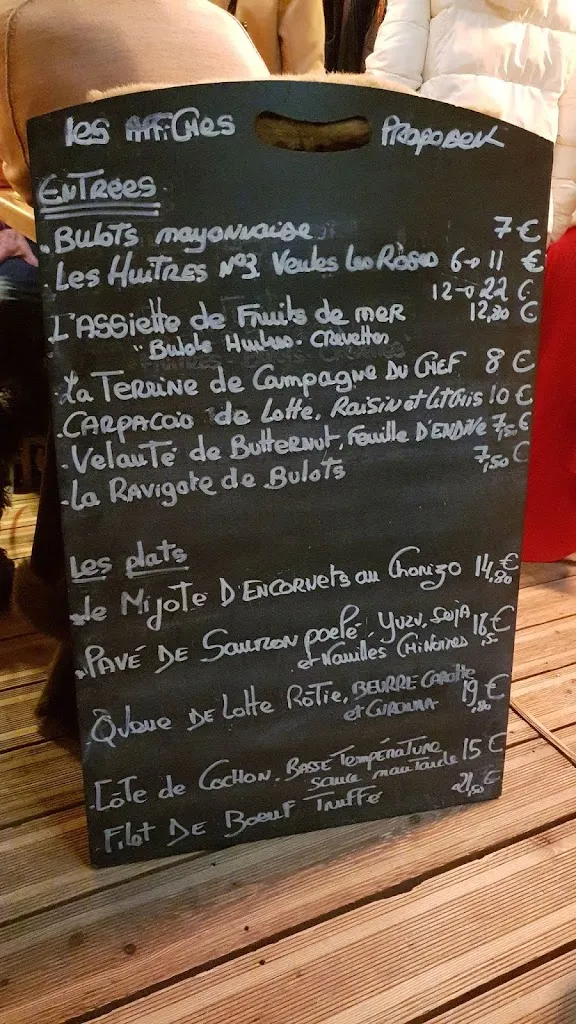 les Affiches Proposent
ENTREES
. Bulots mayonnaise 7 €
Les Huitres N°3 Veules les Roses 6→ 11 €
12→ 22 €
L'Assiette de Fruits de mer 12,80 €
" Bulots Huitres - Crevettes
La Terrine de Campagne DU CHEF 8 €
. CARPACCIO de Lotte, Raisin et Litchis 10 €
. Velouté de Butternut, Feuille D'ENDIVE 7,50 €
. La Ravigote de Bulots 7,50 €
Les plats
. Le Mijoté D'ENCORNETS au Chorizo 14,80 €
. PAVÉ DE Saumon poelé, YUZU, SOJA 16,50 €
et Nouilles CHINOISES
Queue DE Lotte Rôtie, BEURRE CAROTTE 19,80 €
et CURCUMA
. Côte de Cochon. BASSE Température 15 €
sauce moutarde
Filet DE Boeuf Truffé 21,50 €